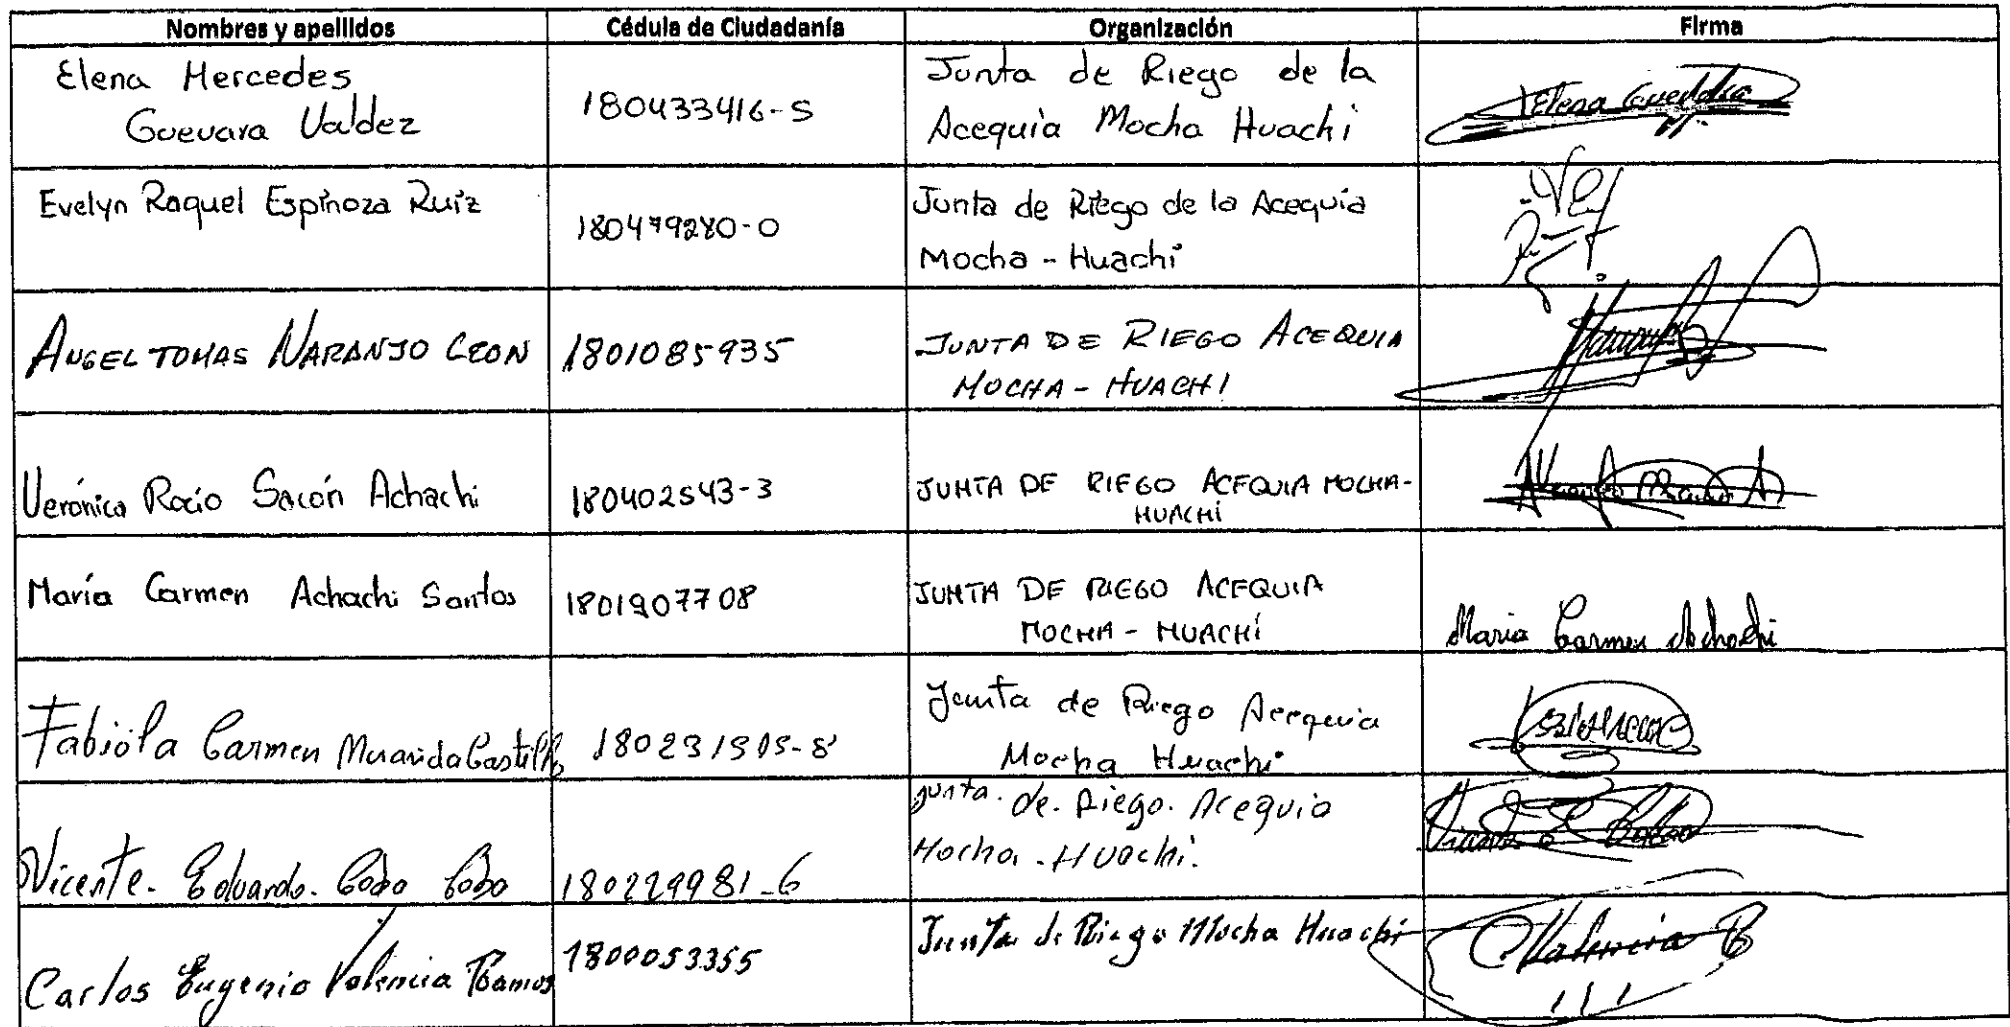 Nombres y apellidos Cédula de Ciudadanía Organización Firma
Elena Mercedes
Guevara Valdez
180433416-5
Junta de Riego de la
Acequia Mocha Huachi
Elena Guevara
Evelyn Raquel Espinoza Ruiz
180479280-0
Junta de Riego de la Acequia
Mocha - Huachi
ANGEL TOMAS NARANJO LEON
1801085935
JUNTA DE RIEGO ACEQUIA
MOCHA - HUACHI
Verónica Rocio Sacón Achachi
180402543-3
JUNTA DE RIEGO ACEQUIA MOCHA-
HUACHÍ
María Carmen Achachi Santos
1801907708
JUNTA DE RIEGO ACEQUIA
MOCHA - HUACHÍ
Maria Carmen Achachi
Fabiola Carmen Castillo
180231505-8
Junta de Riego Acequia
Mocha Huachi
Vicente. Eduardo. Cobo Cobo
180229981-6
Junta. de. Riego. Acequia
Mocha. - Huachi.
Carlos Eugenio Valencia Ramos
1800053355
Junta de Riego Mocha Huachi
C Valencia R